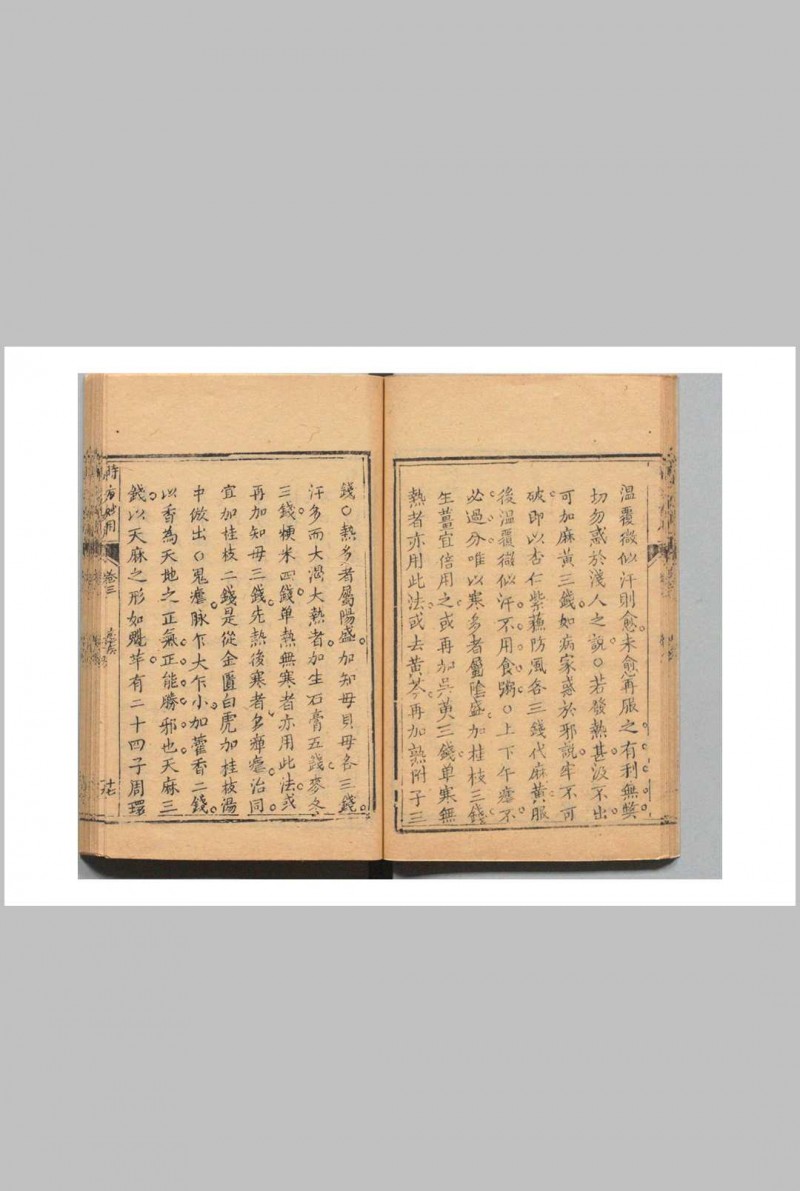 溫覆微似汗則愈未愈再服之有利無獘
切勿惑於淺人之說○若發熱甚汲不出
可加麻黃三錢如病家惑於邪說牢不可
破即以杏仁紫蘓防風各三錢代麻黃服
後溫覆微似汗不用食粥○上下午瘧不
必過分唯以寒多者屬陰盛加桂枝三錢
生薑宜倍用之或再加吳黃三錢单寒無
熱者亦用此法或去黃芩再加熟附子三
錢○熱多者屬陽盛加知母貝母各三錢
汗多而大渴大熱者加生石膏五錢麥冬
三錢粳米四錢单熱無寒者亦用此法或
再加知毋三錢先熱後寒者多癉瘧治同
宜加桂枝二錢是從金匱白虎加桂枝湯
中倣出○鬼瘧脉乍大乍小加藿香二錢
以香為天地之正氣正能勝邪也天麻三
錢以天麻之形如魁芋有二十四子周環
時方妙用
卷三